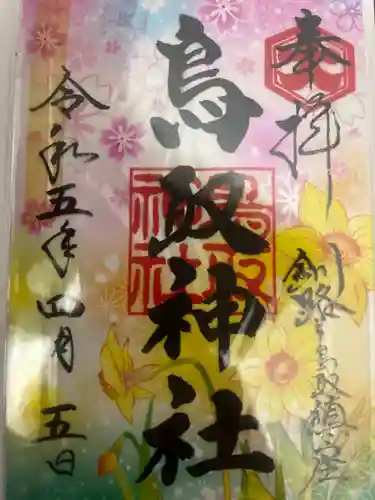 奉拝
釧路 鳥取鎮座
鳥取神社
鳥取神社
令和五年四月五日